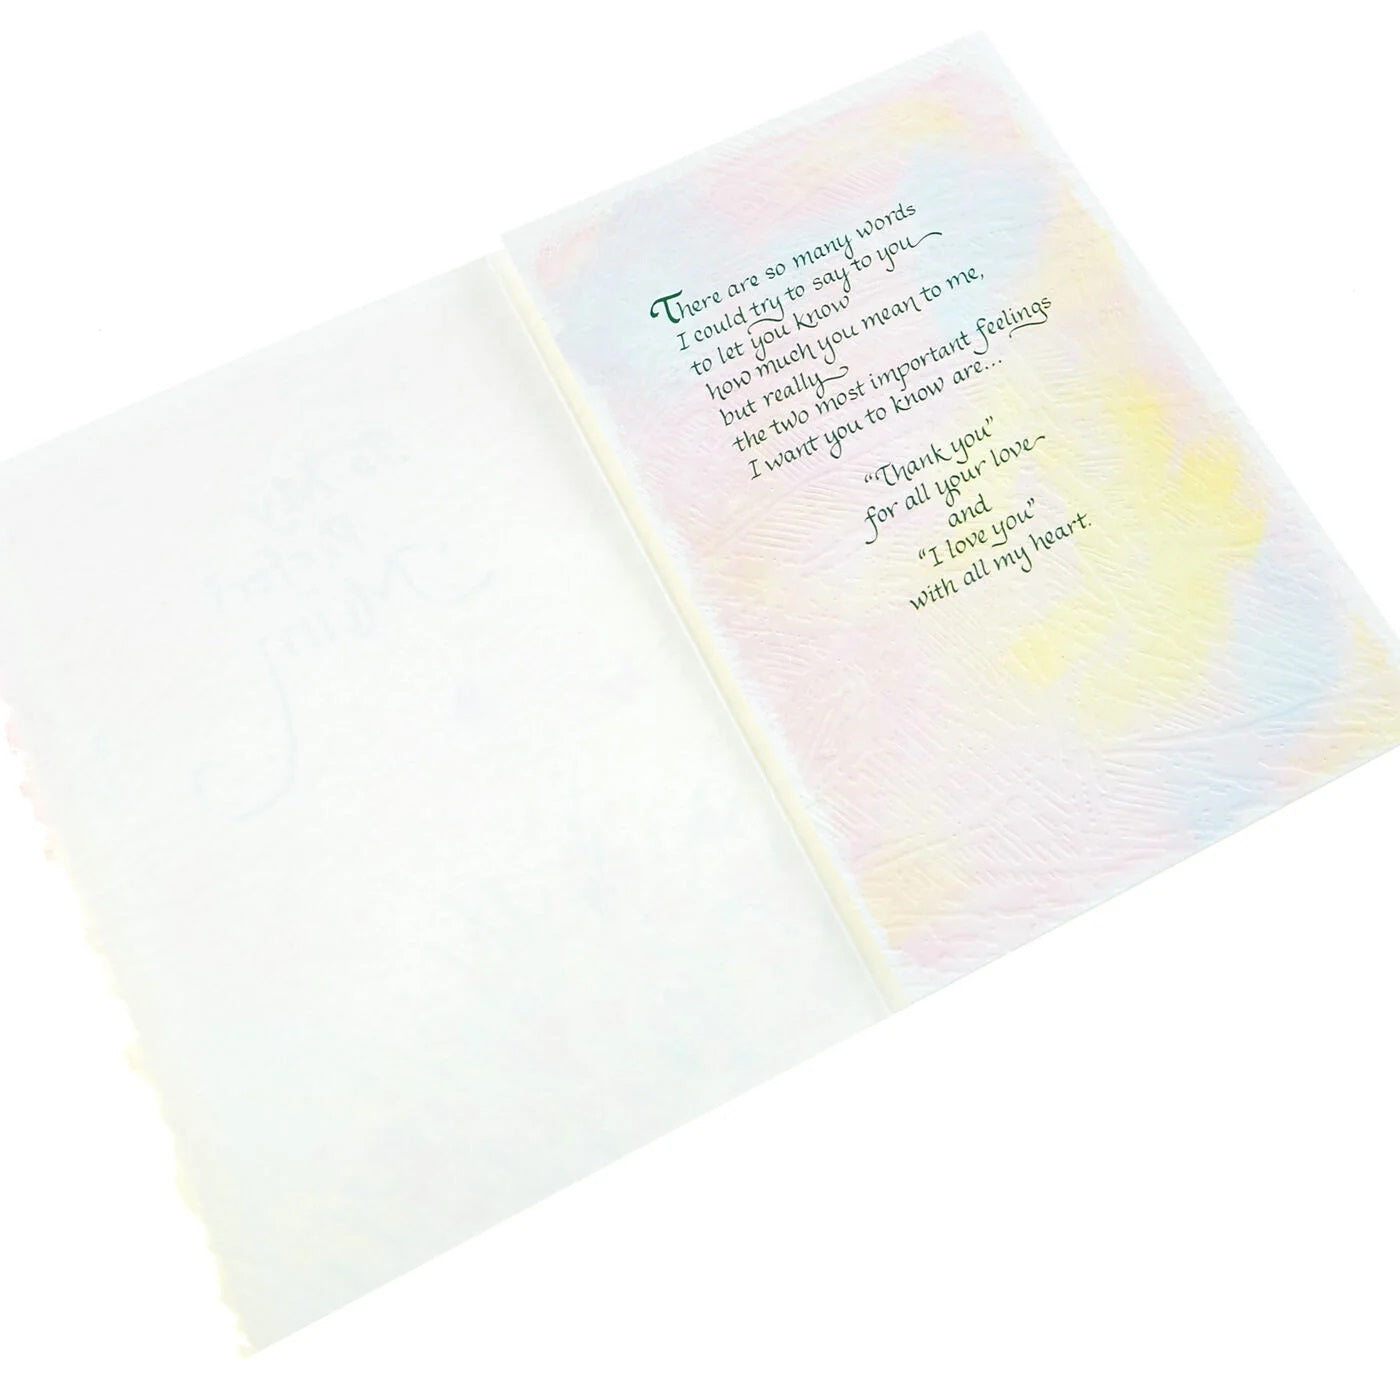 There are so many words
I could try to say to you
to let you know
how much you mean to me,
but really
the two most important feelings
I want you to know are...
"Thank you"
for all your love
and
"I love you"
with all my heart.